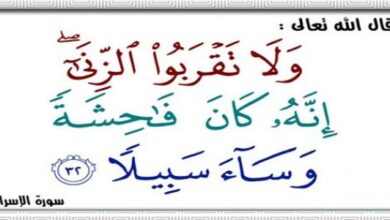 قال الله تعالى :
وَلَا تَقْرَبُوا۟ ٱلزِّنَىٰٓ ۖ
إِنَّهُۥ كَانَ فَـٰحِشَةً
وَسَآءَ سَبِيلًا ٣٢
سورة الإسرا